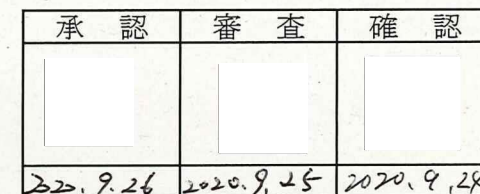 承 認 審 査 確 認
2020.9.26 2020.9.25 2020.9.24